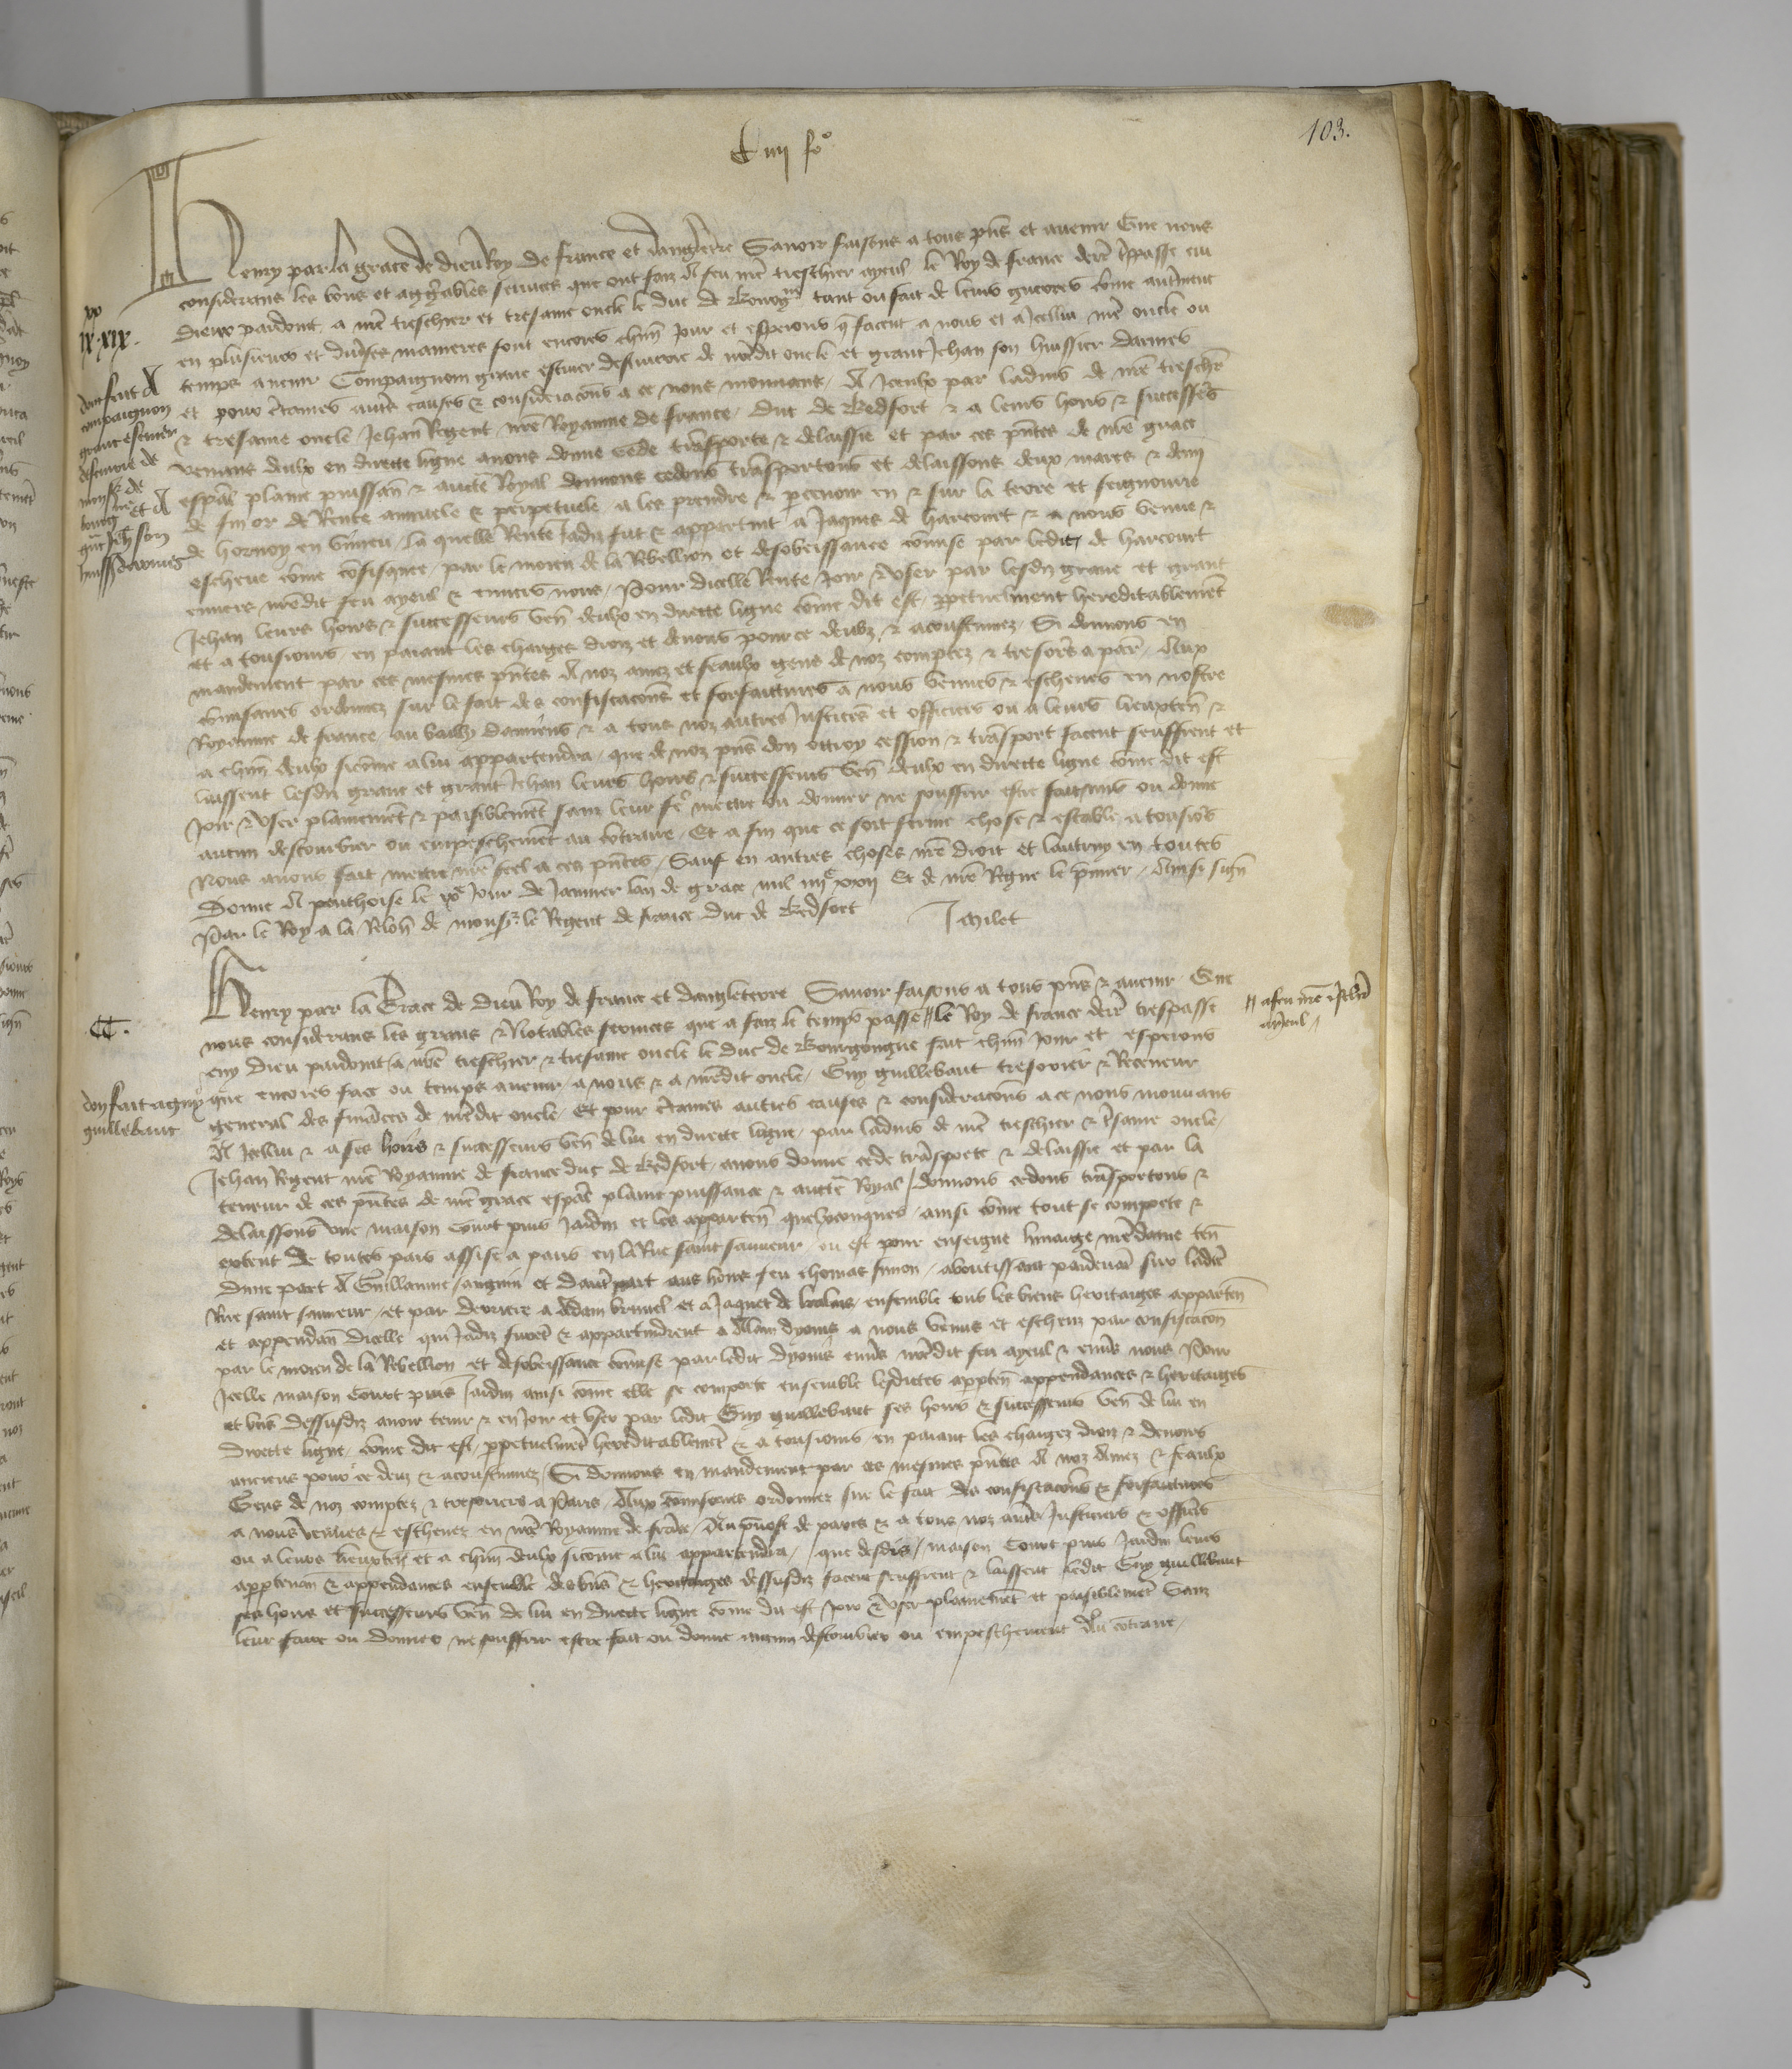 C iiij fo
103.
Henry par la grace de dieu Roy de france et dangleterre Savoir faisons a tous pns et avenir Que nous
considerans les bons et aggreables services que ont faiz A feu nre treschier ayeul le Roy de france derr trespasse cui
dieux pardoint, a nre treschier et tresame oncle le duc de Bourgne tant ou fait de leurs guerres come autrement
en plusieurs et diverses manieres font encores chun jour et esperons q facent a nous et a Icellui nre oncle ou
temps avenir Compaignon grave escuier descuierie de nredit oncle et grant Jehan son huissier darmes
et pour certaines autres causes & consideracons a ce nous mouvans, A Iceulx par ladvis de nre treschr
& tresame oncle Jehan Regent nre Royaume de france, duc de Bedfort & a leurs hoirs & successers
venans deulx en directe ligne avons donne cede transporte & delaissie et par ces pntes de nre grace
espal plaine puissan & aucte Royal donnons cedons transportons et delaissons deux mars & demi
de fin or de Rente annuele & perpetuele a les prendre & percevoir en & sur la terre et seignourie
de hornoy en vimeu, la quelle Rente Jadiz fut & appartint a Jaques de harcourt & a nous venue &
escheue come confisquee, par le moien de la Rebellion et desobeissance comise par ledit de harcourt
envers nredit feu ayeul & envers nous, Pour dicelle Rente Joir & user par lesdiz grave et grant
Jehan leurs hoirs & successeurs ven deulx en directe ligne come dit est, perpetuelment hereditablement
et a tousiours, en paiant les charges droiz et devoirs pour ce deubz & acoustumez, Si donnons en
mandement par ces mesmes pntes A noz amez et feaulx gens de noz comptez & tresorers a par, Aux
comissaires ordonnez sur le fait des confiscacons et forfaittures a nous venues & escheues en nostre
Royaume de france, au bailly damiens & a tous noz autres Justicers et officiers ou a leurs lieuxten &
a chun deulx sicomme a lui appartendra, que de noz pns don ottroy cession & transport facent seuffrent et
laissent lesdiz grave et grant Jehan leurs hoirs & successeurs ven deulx en directe ligne come dit est
Joir & user plainement & paisiblement sans leur fe mettre ou donner ne souffrir estre fait mis ou donne
aucun destourbier ou empeschement au contraire, Et a fin que ce soit ferme chose & estable a tousiors
Nous avons fait mettre nre seel a ces pntes, Sauf en autres choses nre droit et lautruy en toutes
Donne A penthoise le xe Jour de Janvier lan de grace mil iiijc xxij Et de nre Regne le premier, Ainsi signe
Par le Roy a la Relon de monsr le Regent de france duc de Bedfort J milet
xx
ix.xix.
don fait A
compaignon
grave escuier
descuirie de
monsr de
bourg et A
gnt Jeh son
huiss darmes
Henry par la Grace de dieu Roy de france et dangleterre Savoir faisons a tous pns & avenir Que
nous considerans les grans & Notables services que a faiz le temps passe // le Roy de france derr trespasse
// a feu nre treschr
ayeul /
CC.
cuy dieu pardoint, a nre treschier & tresame oncle le duc de Bourgongne fait chun Jour et esperons
que encores face ou temps avenir, a nous & a nredit oncle, Guy guillebaut tresorier & Receveur
don fait a guy
guillebaut
general des finances de nredit oncle, Et pour certaines autres causes & consideracons a ce nous mouvans
A Icellui & a ses hoirs & successeurs ven de lui en directe ligne, par ladvis de nre treschier & tresame oncle,
Jehan Regent nre Royaume de france duc de Bedfort, avons donne cede transporte & delaissie et par la
teneur de ces pntes de nre grace espal plaine puissance & aucte Royal / donnons cedons transportons &
delaissons une maison Court puis Jardin et les apparten quelxconques, ainsi come tout se comporte &
extent de toutes pars assise a paris en la Rue saint sauveur, ou est pour enseigne lymaige nredame ten
dune part A Guillaume sanguin et dautre part aus hoirs feu thomas simon, aboutissant pardevant sur ladte
Rue saint sauveur, et par derriere a Adam brunel et a Jaquet de , ensemble tous les biens heritaiges apparten
et appendan dicelle qui Jadiz furet & appartindrent a Alain dyonis a nous venus et escheuz par confiscacon
par le moien de la Rebellion et desobeissance comise par ledit dyonis envers nredit feu ayeul & envers nous Pour
Icelle maison Court puis Jardin ainsi come elle se comporte ensemble lesdictes apparten appendances & heritaiges
et biens dessusdiz avoir tenir & en Joir et user par ledit Guy guillebaut ses hoirs & successeurs ven de lui en
directe ligne, come dit est, perpetuelmet hereditablemet & a tousiours, en paiant les charges droiz & devoirs
anciens pour ce deuz & acoustumez / Si donnons en mandement par ces mesmes pntes A noz Amez & feaulx
Gens de noz comptez & tresoriers a Paris, Aux comisaires ordonnez sur le fait des confiscacons & forfaitures
a nous venues & escheues en nre Royaume de frace, Au prevost de paris & a tous noz autres Justiciers & officers
ou a leurs lieuxten et a chun deulx sicome a lui appartendra, que desdis / maison Court puis Jardin leurs
appartenan & appendances ensemble des biens & heritaiges dessusdiz facent seuffrent & laissent ledit Guy guillebaut
ses hoirs et successeurs ven de lui en directe ligne come dit est Joir & user plainemet et paisiblemet Sanz
leur faire ou donner, ne souffrir estre fait ou donne aucun destourbier ou empeschement Au contraire,